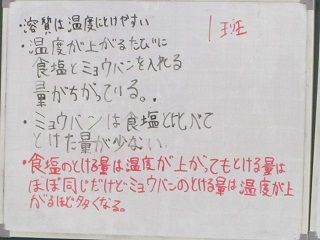 ・溶質は温度にとけやすい
1班
・温度が上がるたびに
食塩とミョウバンを入れる
量がちがっている。
・ミョウバンは食塩と比べて
とけた量が少ない
・食塩のとける量は温度が上がってもとける量は
ほぼ同じだけどミョウバンのとける量は温度が上
がるほど多くなる。